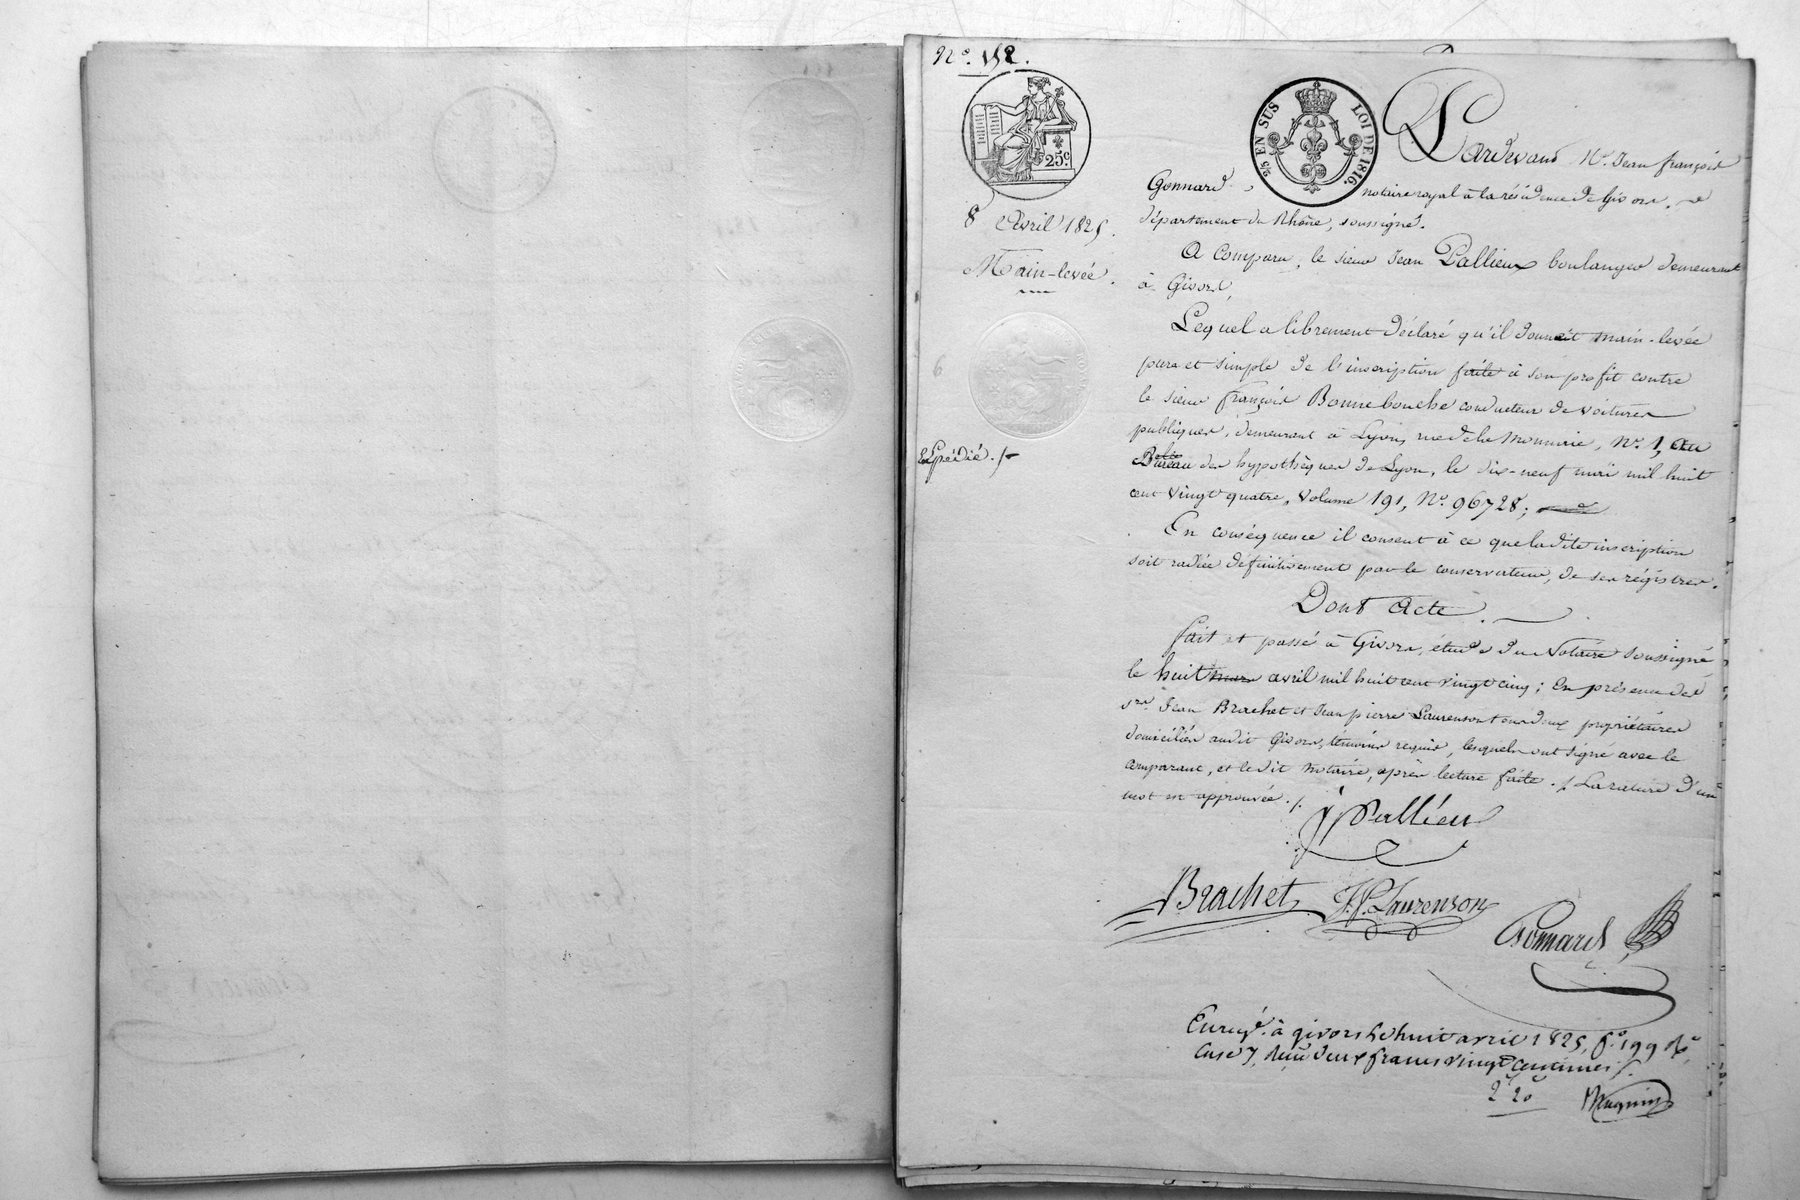 N.º 152.
25.c
2/5 EN SUS LOI DE 1816.
8 Avril 1825.
Main-levée.
Expédié. /-
Pardevant M.e Jean françois
Gonnard, notaire royal à la résidence de Givors,
département du Rhône, soussigné.
A Comparu, le sieur Jean Pallieux boulanger demeurant
à Givors,
Lequel a librement déclaré qu'il donnait main-levée
pure et simple de l'inscription faite à son profit contre
le sieur françois Bonnebouche conducteur de voitures
publiques, demeurant à Lyon, rue de la Monnaie, N.º 1, au
Bureau des hypothèques de Lyon, le dix-neuf mai mil huit
cent vingt quatre, volume 191, N.º 96728;
En conséquence il consent à ce que ladite inscription
soit radiée définitivement par le conservateur, de ses régistres.
Dont Acte.
fait et passé à Givors, étude du Notaire soussigné
le huit mars avril mil huit cent vingt cinq; En présence des
s.rs Jean Brachet et Jean pierre Laurenson tous deux propriétaires
domiciliés audit Givors, témoins requis, lesquels ont signé avec le
comparant, et ledit Notaire, après lecture faite. /. La rature d'un
mot est approuvée. /.
J Pallieu
Brachet J.P. Laurenson
Gonnard
Enreg.é à givors le huit avril 1825, f.o 199 R.o
Case 7, Reçu deux francs vingt centimes /.
2f 20c